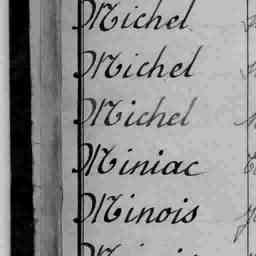 Michel
Michel
Michel
Miniac
Minois